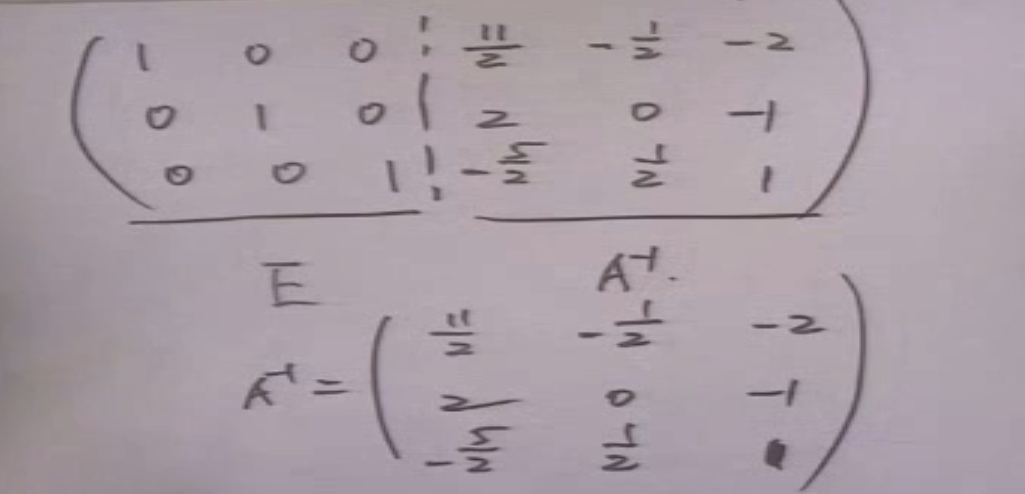 1 0 0 11/2 -1/2 -2
0 1 0 2 0 -1
0 0 1 -5/2 1/2 1
E A⁻¹.
11/2 -1/2 -2
A⁻¹ = 2 0 -1
-5/2 1/2